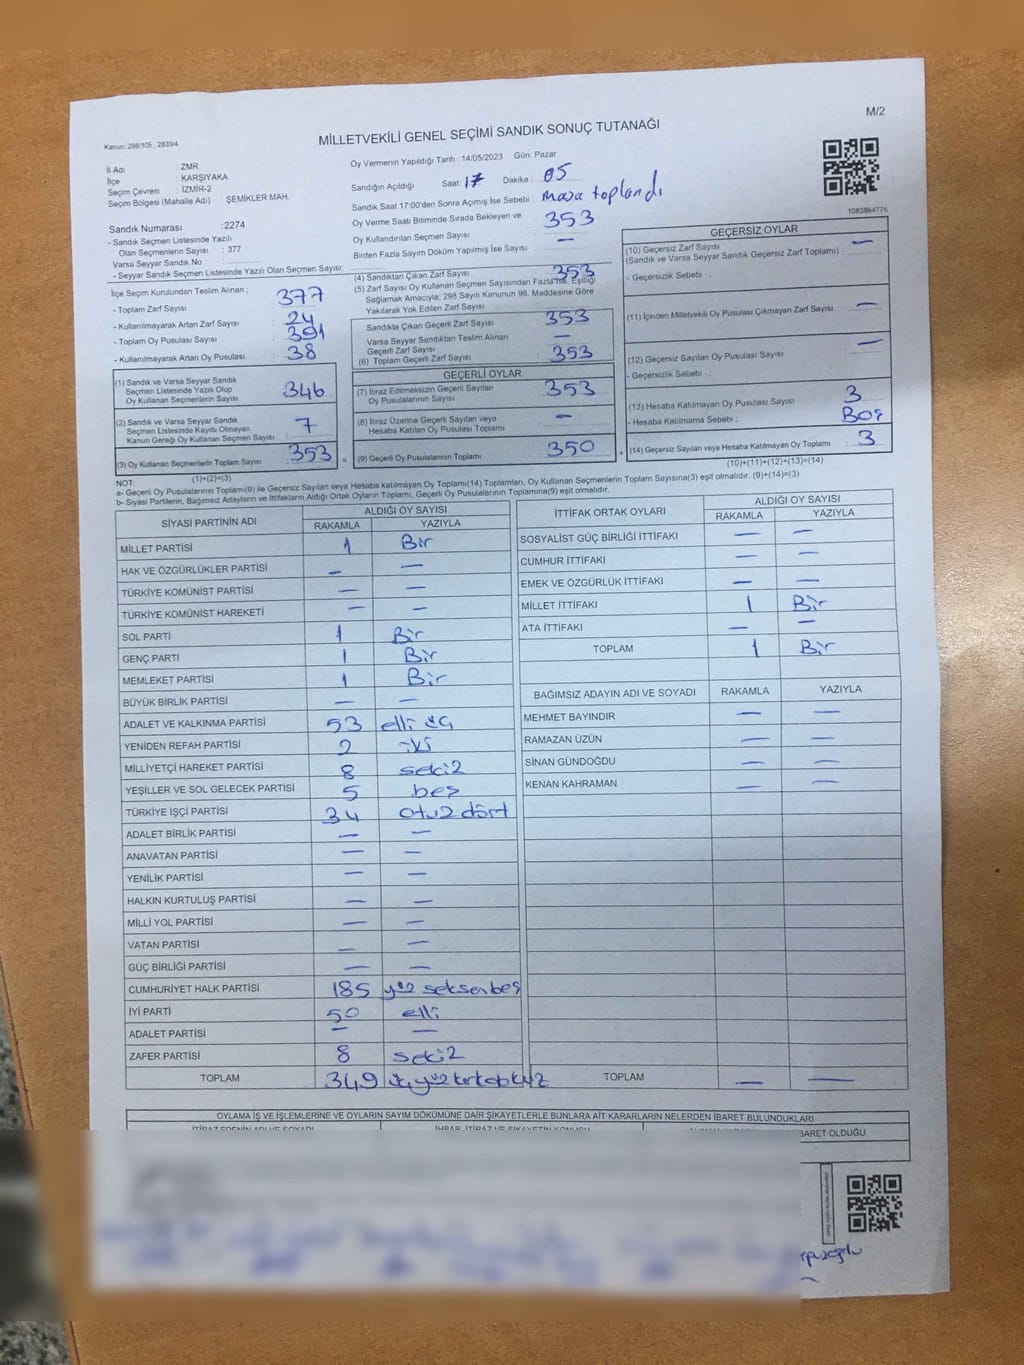 M/2
Kanun: 298/105 , 2839/4
MİLLETVEKİLİ GENEL SEÇİMİ SANDIK SONUÇ TUTANAĞI
İl Adı : ZMR
İlçe : KARŞIYAKA
Seçim Çevresi : İZMİR-2
Seçim Bölgesi (Mahalle Adı) : ŞEMİKLER MAH.
Sandık Numarası :2274
- Sandık Seçmen Listesinde Yazılı
Olan Seçmenlerin Sayısı : 377
Varsa Seyyar Sandık No
- Seyyar Sandık Seçmen Listesinde Yazılı Olan Seçmen Sayısı:
İlçe Seçim Kurulundan Teslim Alınan ;
- Toplam Zarf Sayısı 377
- Kullanılmayarak Artan Zarf Sayısı 24
- Toplam Oy Pusulası Sayısı 391
- Kullanılmayarak Artan Oy Pusulası 38
(1) Sandık ve Varsa Seyyar Sandık
Seçmen Listesinde Yazılı Olup
Oy Kullanan Seçmenlerin Sayısı 346
(2) Sandık ve Varsa Seyyar Sandık
Seçmen Listesinde Kayıtlı Olmayan
Kanun Gereği Oy Kullanan Seçmen Sayısı 7
(3) Oy Kullanan Seçmenlerin Toplam Sayısı 353 =
(1)+(2)=(3)
Oy Vermenin Yapıldığı Tarih : 14/05/2023 Gün. Pazar
Sandığın Açıldığı Saat: 17 Dakika : 05
Sandık Saat 17:00'den Sonra Açımış İse Sebebi : masa toplandı
Oy Verme Saati Bitiminde Sırada Bekleyen ve
Oy Kullandırılan Seçmen Sayısı 353
Birden Fazla Sayım Döküm Yapılmış İse Sayısı —
(4) Sandıktan Çıkan Zarf Sayısı 353
(5) Zarf Sayısı Oy Kullanan Seçmen Sayısından Fazla İse, Eşitliği
Sağlamak Amacıyla; 298 Sayılı Kanunun 98. Maddesine Göre
Yakılarak Yok Edilen Zarf Sayısı
Sandıkta Çıkan Geçerli Zarf Sayısı 353
Varsa Seyyar Sandıktan Teslim Alınan
Geçerli Zarf Sayısı —
(6) Toplam Geçerli Zarf Sayısı 353
GEÇERLİ OYLAR
(7) İtiraz Edilmeksizin Geçerli Sayılan
Oy Pusulalarının Sayısı 353
(8) İtiraz Üzerine Geçerli Sayılan veya
Hesaba Katılan Oy Pusulası Toplamı —
(9) Geçerli Oy Pusulalarının Toplamı 350 +
1083864776
GEÇERSİZ OYLAR
(10) Geçersiz Zarf Sayısı —
(Sandık ve Varsa Seyyar Sandık Geçersiz Zarf Toplamı) :
- Geçersizlik Sebebi :
(11) İçinden Milletvekili Oy Pusulası Çıkmayan Zarf Sayısı —
(12) Geçersiz Sayılan Oy Pusulası Sayısı —
- Geçersizlik Sebebi :
(13) Hesaba Katılmayan Oy Pusulası Sayısı 3
- Hesaba Katılmama Sebebi : Boş
(14) Geçersiz Sayılan veya Hesaba Katılmayan Oy Toplamı : 3
(10)+(11)+(12)+(13)=(14)
NOT:
a- Geçerli Oy Pusulalarının Toplamı(9) ile Geçersiz Sayılan veya Hesaba katılmayan Oy Toplamı(14) Toplamları, Oy Kullanan Seçmenlerin Toplam Sayısına(3) eşit olmalıdır. (9)+(14)=(3)
b- Siyasi Partilerin, Bağımsız Adayların ve İttifakların Aldığı Ortak Oyların Toplamı, Geçerli Oy Pusulalarının Toplamına(9) eşit olmalıdır.
SİYASİ PARTİNİN ADI ALDIĞI OY SAYISI
RAKAMLA YAZIYLA
MİLLET PARTİSİ 1 Bir
HAK VE ÖZGÜRLÜKLER PARTİSİ — —
TÜRKİYE KOMÜNİST PARTİSİ — —
TÜRKİYE KOMÜNİST HAREKETİ — —
SOL PARTİ 1 Bir
GENÇ PARTİ 1 Bir
MEMLEKET PARTİSİ 1 Bir
BÜYÜK BİRLİK PARTİSİ — —
ADALET VE KALKINMA PARTİSİ 53 elli üç
YENİDEN REFAH PARTİSİ 2 iki
MİLLİYETÇİ HAREKET PARTİSİ 8 sekiz
YEŞİLLER VE SOL GELECEK PARTİSİ 5 beş
TÜRKİYE İŞÇİ PARTİSİ 34 otuz dört
ADALET BİRLİK PARTİSİ — —
ANAVATAN PARTİSİ — —
YENİLİK PARTİSİ — —
HALKIN KURTULUŞ PARTİSİ — —
MİLLİ YOL PARTİSİ — —
VATAN PARTİSİ — —
GÜÇ BİRLİĞİ PARTİSİ — —
CUMHURİYET HALK PARTİSİ 185 yüz seksen beş
İYİ PARTİ 50 elli
ADALET PARTİSİ — —
ZAFER PARTİSİ 8 sekiz
TOPLAM 349 üç yüz kırk dokuz
İTTİFAK ORTAK OYLARI ALDIĞI OY SAYISI
RAKAMLA YAZIYLA
SOSYALİST GÜÇ BİRLİĞİ İTTİFAKI — —
CUMHUR İTTİFAKI — —
EMEK VE ÖZGÜRLÜK İTTİFAKI — —
MİLLET İTTİFAKI 1 Bir
ATA İTTİFAKI — —
TOPLAM 1 Bir
BAĞIMSIZ ADAYIN ADI VE SOYADI RAKAMLA YAZIYLA
MEHMET BAYINDIR — —
RAMAZAN ÜZÜN — —
SİNAN GÜNDOĞDU — —
KENAN KAHRAMAN — —
TOPLAM — —
OYLAMA İŞ VE İŞLEMLERİNE VE OYLARIN SAYIM DÖKÜMÜNE DAİR ŞİKAYETLERLE BUNLARA AİT KARARLARIN NELERDEN İBARET BULUNDUKLARI
İTİRAZ EDENİN ADI VE SOYADI İHBAR, İTİRAZ VE ŞİKAYETİN KONUSU BARET OLDUĞU